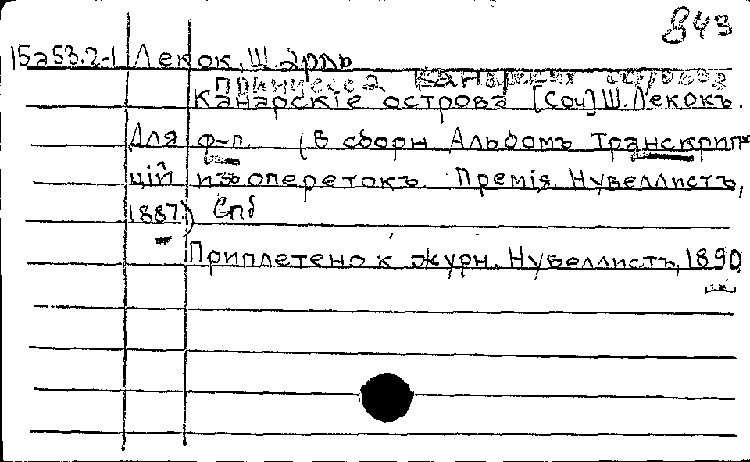 843
15а53.2-1 Лекок, Шарль
Принцесса Канарских островов
Канарскіе острова [Соч] Ш. Лекокъ.
Для ф-п. (В сборн Альбомъ Транскрип-
цій изъ оперетокъ. Премія Нувеллистъ,
1887) Спб
Приплетено к журн. Нувеллистъ, 1890